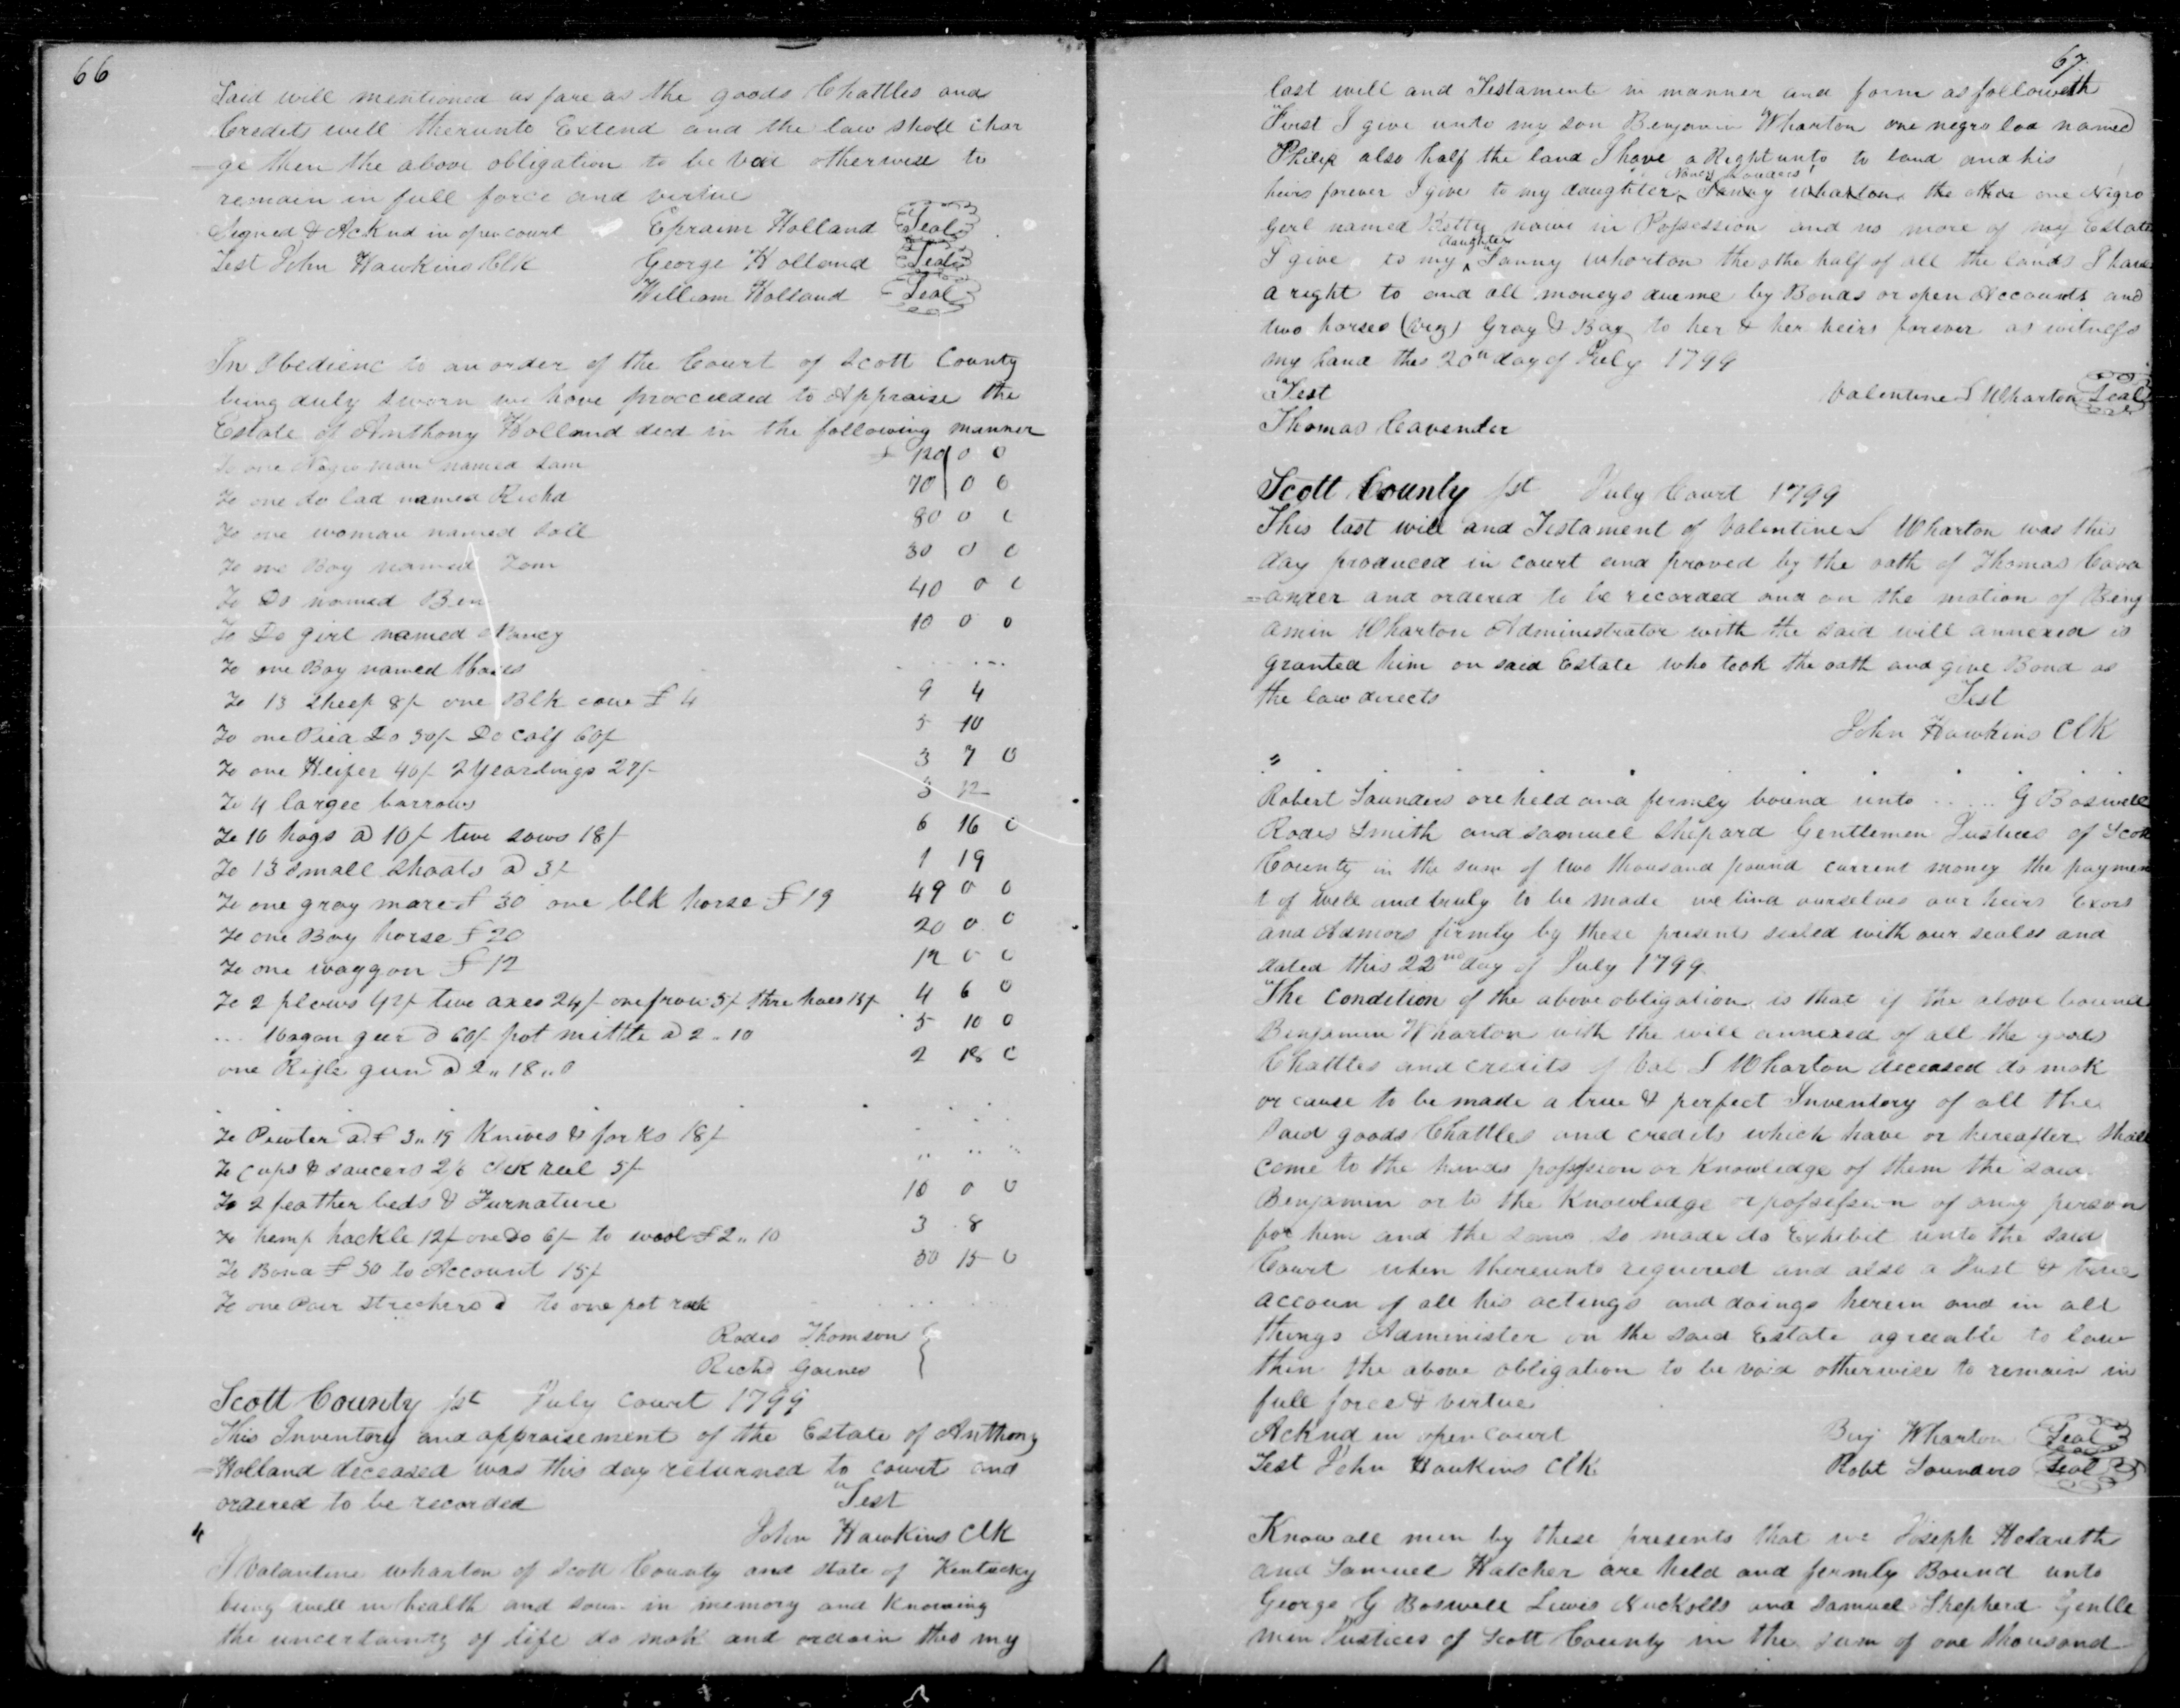 66
Said will mentioned as fare as the goods Chattles and
Credits will therunto Extend and the law shall char
=ge then the above obligation to be void otherwise to
remain in full force and virtue
Signed & Acknd in open court Ephraim Holland Seal
Test John Hawkins Clk George Holland Seal
William Holland Seal
In Obedienc to an order of the Court of Scott County
being duly sworn we have procceeded to Appraise the
Estate of Anthony Holland decd in the following manner
To one Negro man named Sam £ 120 0 0
To one do lad named Richd 70 0 0
To one woman named Doll 80 0 0
To one Boy named Tom 30 0 0
To Do named Ben 40 0 0
To Do girl named Nancy 10 0 0
To one Boy named Moses
To 13 sheep 8/ one Blk cow £ 4 9 4
To one Do 50/ Do calf 60/ 5 10
To one Heifer 40/ 2 Yearlings 27/ 3 7 0
To 4 largee barrows 3 12
To 10 hogs @ 10/ two sows 18/ 6 16 0
To 13 small shoats @ 3/ 1 19
To one gray mare £ 30 one blk horse £ 19 49 0 0
To one Bay horse £ 20 20 0 0
To one waggon £ 12 12 0 0
To 2 plows 42/ two axes 24/ one frow 5/ thre hoes 15/ 4 6 0
... Wagon geer @ 60/ pot mittle @ 2 .. 10 5 10 0
one Rifle gun @ 2 .. 18 .. 0 2 18 0
To Pewter @ £ 3 .. 19 Knives & forks 18/
To cups & saucers 2/6 reel 5/
To 2 feather beds & Furnature 10 0 0
To hemp hackle 12/ one Do 6/ to wool £ 2 .. 10 3 .8
To Bond £ 50 to Account 15/ 50 15 0
To one Pair @ to one pot rack
Rodes Thomson
Richd Gaines
Scott County Sst July Court 1799
This Inventory and appraisement of the Estate of Anthony
=Holland deceased was this day returned to court and
ordered to be recorded Test
John Hawkins Clk
I Valantine Wharton of Scott County and state of Kentucky
being well in health and soun in memory and Knowing
the uncertainty of life do mak and ordain this my
67
last will and Testament in manner and form as followeth
First I give unto my son Benjamin Wharton one negro lad named
Philip also half the land I have a Right unto to land and his
Nancy Sanders
heirs forever I give to my daughter Fanny Wharton the one Negro
Girl named Betty nowe in Possession and no more of my Estate
daughter
I give to my Fanny Wharton the othe half of all the lands I have
a right to and all moneys due me by Bonds or open Accounts and
two horses (viz) Gray & Bay to her & her heirs forever as witness
my hand this 20th day of July 1799
Test Valentine S Wharton Seal
Thomas Cavender
Scott County Sst July Court 1799
This last will and Testament of Valentine S Wharton was this
day produced in court and proved by the oath of Thomas Cava
=ander and ordered to be recorded and on the motion of Benj
amin Wharton Administrator with the said will annexed is
granted him on said Estate who took the oath and give Bond as
the law directs Test
John Hawkins Clk
Robert Saunders are held and firmly bound unto ..... G Boswell
Rodes Smith and Samuel Shepard Gentlemen Justices of Scott
County in the sum of two thousand pound current money the paymen
t of well and truly to be made we bind ourselves our heirs Exors
and Admors firmly by these presents sealed with our seales and
dated this 22nd day of July 1799
The Condition of the above obligation is that if the above bound
Benjamin Wharton with the will annexed of all the goods
Chattles and credits of Val S Wharton deceased do mak
or cause to be made a true & perfect Inventory of all the
said goods Chattles and credits which have or hereafter shall
come to the hands possesion or Knowledge of them the said
Benjamin or to the Knowledge or possession of any person
for him and the same so made do Exhibit unto the said
Court when thereunto required and also a Just & true
accoun of all his actings and doings herein and in all
things Administer on the said Estate agreeable to law
then the above obligation to be void otherwise to remain in
full force & virtue
Acknd in open court Benj Wharton Seal
Test John Hawkins Clk Robt Saunders Seal
Know all men by these presents that we Joseph
and Samuel Hatcher are held and firmly Bound unto
George G Boswell Lewis Nuckolls and Samuel Shepherd Gentle
men Justices of Scott County in the sum of one thousand